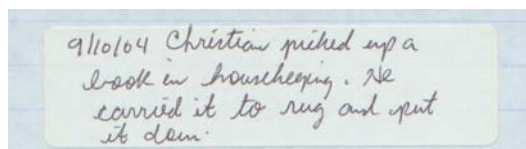 9/10/04 Christian picked up a
book in housekeeping. He
carried it to rug and put
it down.